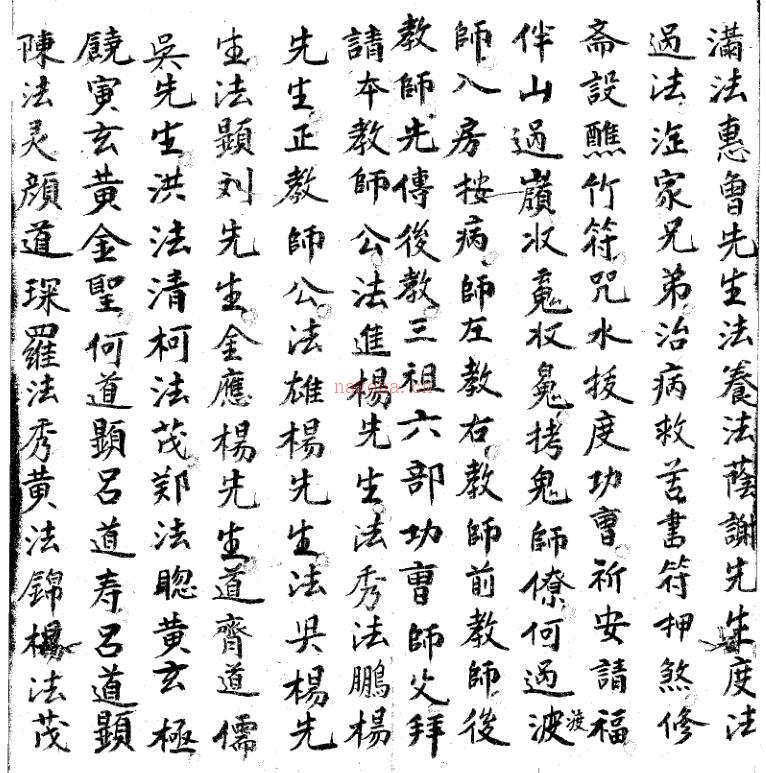 滿法惠曾先生法養法蔭謝先生度法
過法 家兄弟治病救苦書符押煞修
斋設醮竹符咒水拔度功曹祈安請福
伴山過嶺收 收 拷鬼師僚何過波渡
師入房按病師左教右教師前教師後
教師先傳後教三祖六部功曹師父拜
請本教師公法進楊先生法秀法鵬楊
先生正教師公法雄楊先生法吳楊先
生法顕刘先生金應楊先生道齊道儒
吳先生洪法清柯法茂郑法聰黄玄極
饒寅玄黄金聖何道顕呂道寿呂道顕
陳法灵顔道琛羅法秀黄法錦楊法茂
nayona.cn